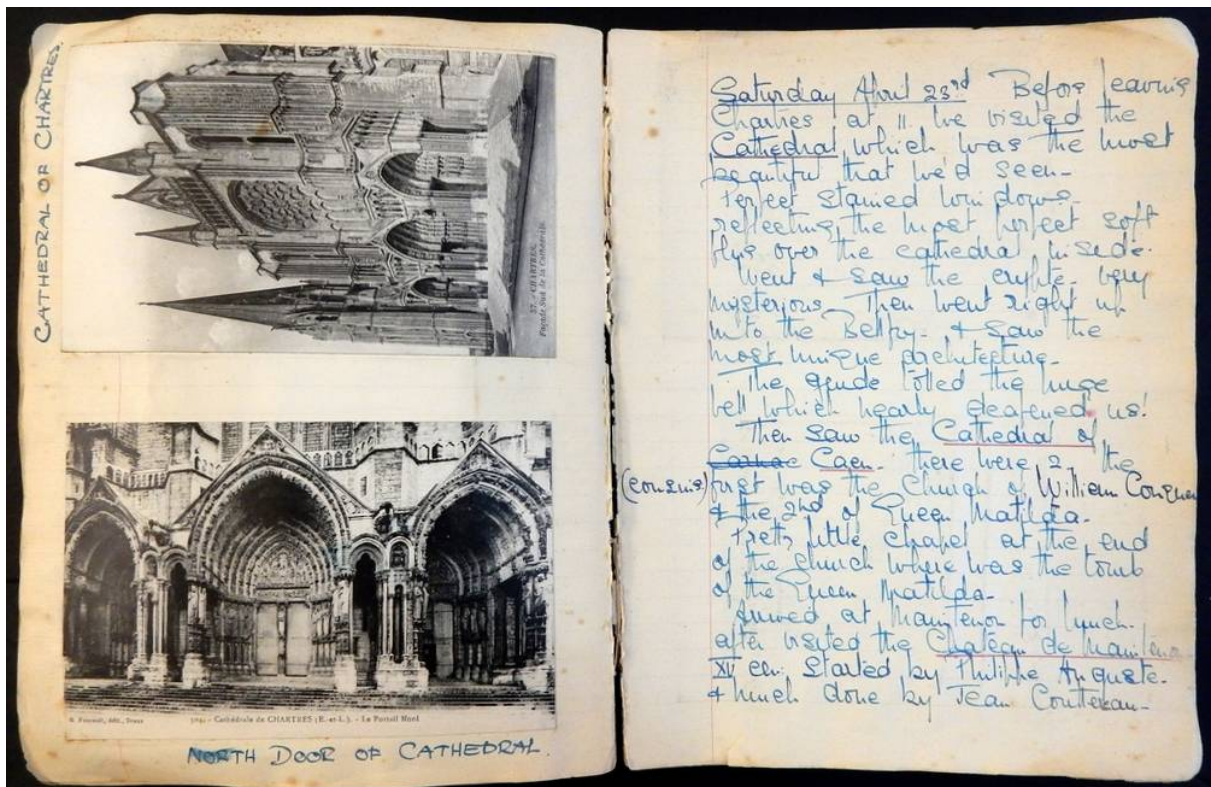 CATHEDRAL OF CHARTRES.
37. - CHARTRES
Façade Sud de la Cathédrale
- Cathédrale de CHARTRES (E.-et-L.). - Le Portail Nord
NORTH DOOR OF CATHEDRAL.
Saturday April 23rd Before leaving
Chartres at 11. we visited the
Cathedral, which was the most
beautiful that we'd seen-
Perfect stained windows-
reflecting the most perfect soft
over the cathedral inside-
Went & saw the crypte- very
mysterious. Then went right up
into the Belfry- & saw the
most unique architecture-
The guide tolled the huge
bell which nearly deafened us!
Then saw the Cathedral of
Carnac Caen. there were 2. the
(cousins) first was the Church of William Conquer
& the 2nd of Queen Matilda-
Pretty little chapel at the end
of the church where was the tomb
of the Queen Matilda-
Arrived at Maintenon for lunch-
after visited the Chateau de Maintenon
XIV cen. Started by Philippe Auguste-
& much done by Jean